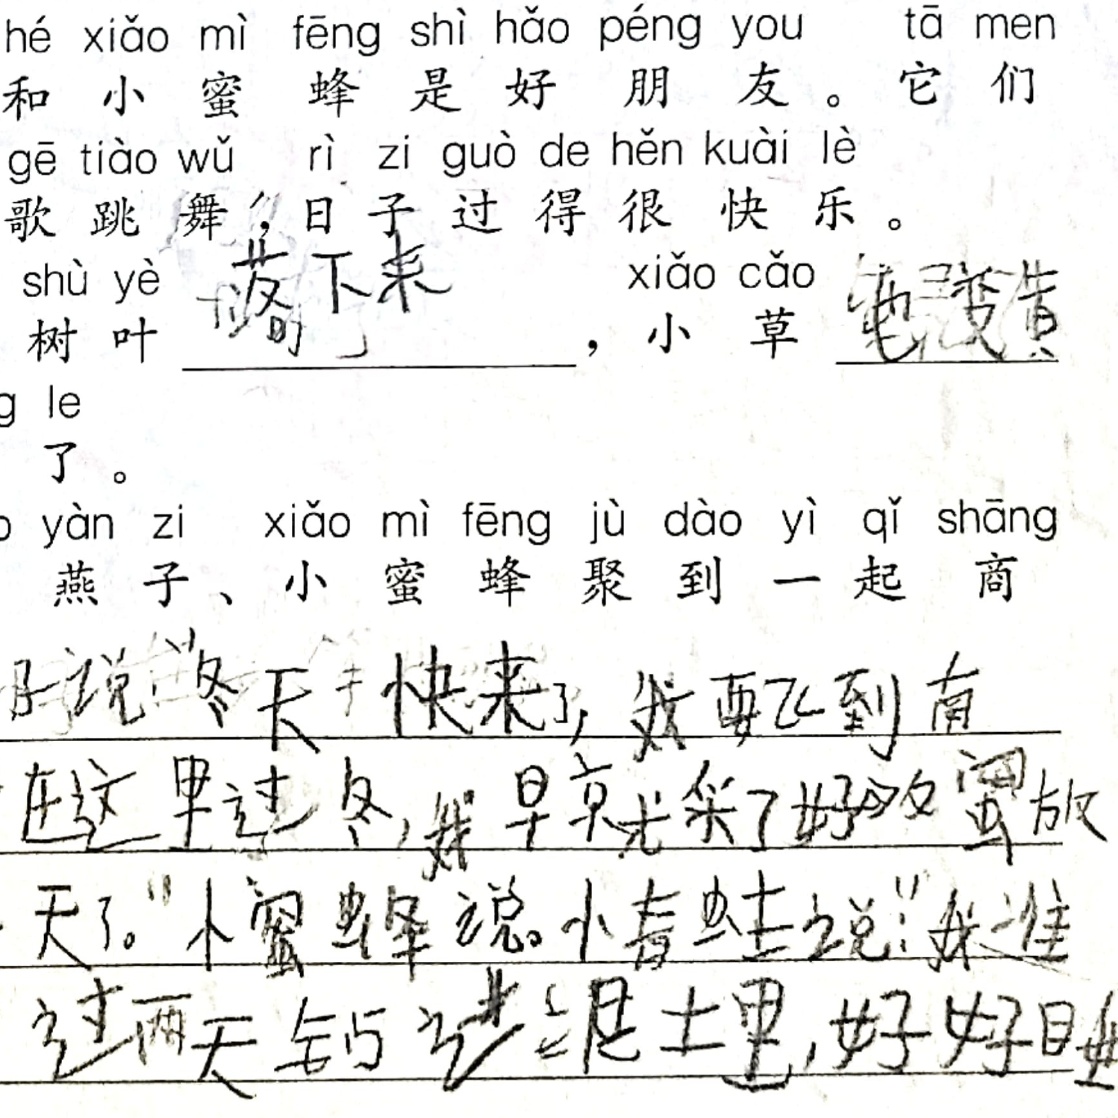 hé xiǎo mì fēng shì hǎo péng you tā men
和小蜜蜂是好朋友。它们
gē tiào wǔ rì zi guò de hěn kuài lè
歌跳舞，日子过得很快乐。
shù yè xiǎo cǎo
树叶落下来，小草变黄
g le
了。
yàn zi xiǎo mì fēng jù dào yì qǐ shāng
燕子、小蜜蜂聚到一起商
说冬天快来了,我要飞到南
在这里过冬,我早就采了好多蜜放
天了。"小蜜蜂说。小青蛙说:"我准
过两天钻进泥土里,好好